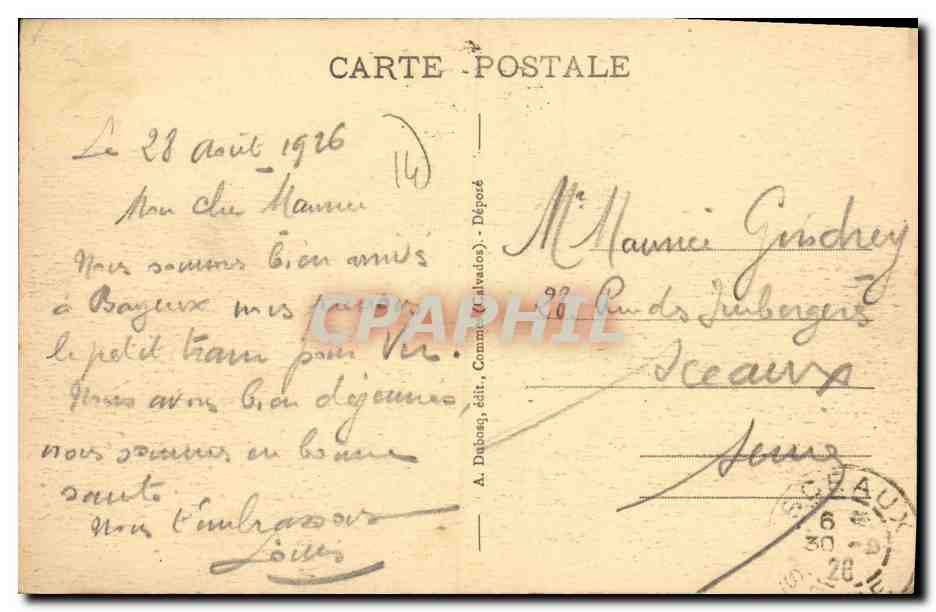 CARTE POSTALE
Le 28 Août 1926
14
Mon cher Maurice
Nous sommes bien arrivés
à Bayeux
le petit tram pour
Nous avons bien déjeunés,
nous sommes en bonne
santé
Nous t'embrassons
Louis
A. Dubosq, édit., Commes (Calvados). - Déposé
Mr Maurice Gindrey
28 Rue des Imbergères
Sceaux
Seine
SCEAUX
6
30 -8
26
CPAPHIL